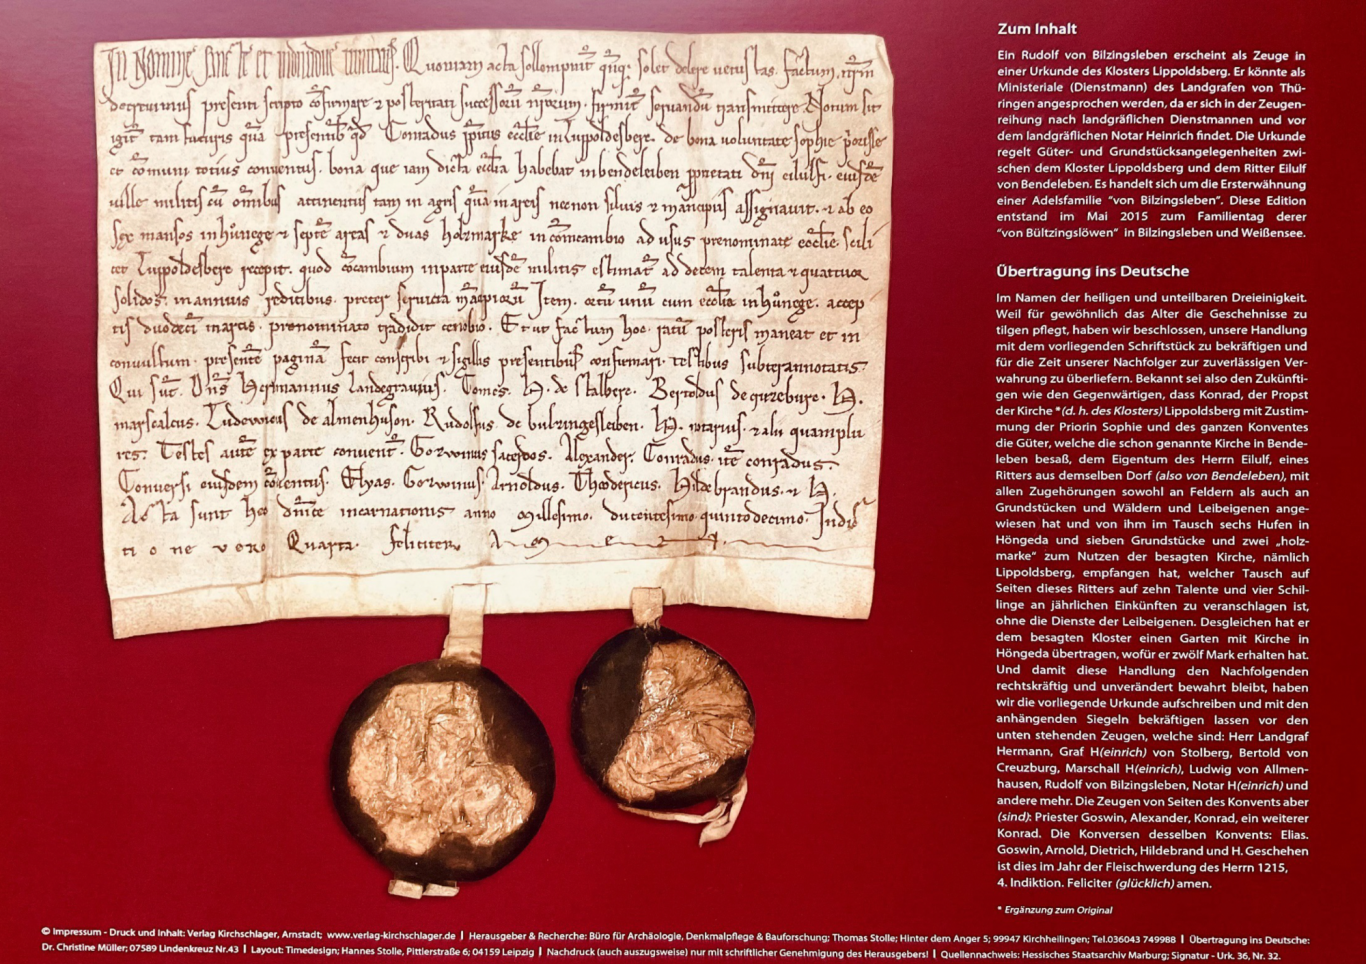 In Nomine sancte et individue trinitatis. Quoniam acta sollempnit qnq; solet delere vetustas. factum nrm
decrevimus presenti scripto cōfirmare ⁊ posteritati successorū nrorum. firmit servandū transmittere. Notum sit
igit tam futuris quā presentib qd Conradus ppitus ecclie in Luppoldesberc. de bona voluntate sophie priorisse
et cōmuni totius conventus. bona que iam dicta ecclia habebat in bendeleiben pprietati dni eilulfi. eiusdē
ville militis cū omibus attinentiis tam in agris quā in areis necnon silvis ⁊ mancipiis assignavit. ⁊ ab eo
sex mansos in hůnege ⁊ septē areas ⁊ duas holzmarke in cōmcambio ad usus prenominate ecclie scili
cet Luppoldesberc recepit. quod cōcambium in parte eiusdē militis estimat ad decem talenta ⁊ quattuor
solidos. in annuis reditibus. preter servicia mācipiorū Item. ortū unū cum ecclia in hůnege. accep
tis duodeci marcis. prenominato tradidit cenobio. Et ut factum hoc. ratū posteris maneat et in
convulsum. presentē paginā fecit conscribi ⁊ sigillis presentibus confirmari. testibus subterannotatis.
Qui sūt. Dns Hermannus Landegravius. Comes. H. de stalberc. Bertoldus de cruzeburc. H.
marscalcus. Ludewicus de almenhusen. Rudolfus. de bulzingesleiben. H. notarius. ⁊ alii quamplu
res. Testes autē ex parte convent. Gozwinus sacerdos. Alexander. Conradus. itē conradus.
Conversi eiusdem cōventus. Elyas. Gozwinus. Arnoldus. Thidericus. Hildebrandus. ⁊ H.
Acta sunt hec dnice incarnationis anno Millesimo. ducentesimo quintodecimo. Indic
tione vero Quarta. feliciter Amen.
Zum Inhalt
Ein Rudolf von Bilzingsleben erscheint als Zeuge in
einer Urkunde des Klosters Lippoldsberg. Er könnte als
Ministeriale (Dienstmann) des Landgrafen von Thü-
ringen angesprochen werden, da er sich in der Zeugen-
reihung nach landgräflichen Dienstmannen und vor
dem landgräflichen Notar Heinrich findet. Die Urkunde
regelt Güter- und Grundstücksangelegenheiten zwi-
schen dem Kloster Lippoldsberg und dem Ritter Eilulf
von Bendeleben. Es handelt sich um die Ersterwähnung
einer Adelsfamilie "von Bilzingsleben". Diese Edition
entstand im Mai 2015 zum Familientag derer
"von Bültzingslöwen" in Bilzingsleben und Weißensee.
Übertragung ins Deutsche
Im Namen der heiligen und unteilbaren Dreieinigkeit.
Weil für gewöhnlich das Alter die Geschehnisse zu
tilgen pflegt, haben wir beschlossen, unsere Handlung
mit dem vorliegenden Schriftstück zu bekräftigen und
für die Zeit unserer Nachfolger zur zuverlässigen Ver-
wahrung zu überliefern. Bekannt sei also den Zukünfti-
gen wie den Gegenwärtigen, dass Konrad, der Propst
der Kirche *(d. h. des Klosters) Lippoldsberg mit Zustim-
mung der Priorin Sophie und des ganzen Konventes
die Güter, welche die schon genannte Kirche in Bende-
leben besaß, dem Eigentum des Herrn Eilulf, eines
Ritters aus demselben Dorf (also von Bendeleben), mit
allen Zugehörungen sowohl an Feldern als auch an
Grundstücken und Wäldern und Leibeigenen ange-
wiesen hat und von ihm im Tausch sechs Hufen in
Höngeda und sieben Grundstücke und zwei „holz-
marke" zum Nutzen der besagten Kirche, nämlich
Lippoldsberg, empfangen hat, welcher Tausch auf
Seiten dieses Ritters auf zehn Talente und vier Schil-
linge an jährlichen Einkünften zu veranschlagen ist,
ohne die Dienste der Leibeigenen. Desgleichen hat er
dem besagten Kloster einen Garten mit Kirche in
Höngeda übertragen, wofür er zwölf Mark erhalten hat.
Und damit diese Handlung den Nachfolgenden
rechtskräftig und unverändert bewahrt bleibt, haben
wir die vorliegende Urkunde aufschreiben und mit den
anhängenden Siegeln bekräftigen lassen vor den
unten stehenden Zeugen, welche sind: Herr Landgraf
Hermann, Graf H(einrich) von Stolberg, Bertold von
Creuzburg, Marschall H(einrich), Ludwig von Allmen-
hausen, Rudolf von Bilzingsleben, Notar H(einrich) und
andere mehr. Die Zeugen von Seiten des Konvents aber
(sind): Priester Goswin, Alexander, Konrad, ein weiterer
Konrad. Die Konversen desselben Konvents: Elias.
Goswin, Arnold, Dietrich, Hildebrand und H. Geschehen
ist dies im Jahr der Fleischwerdung des Herrn 1215,
4. Indiktion. Feliciter (glücklich) amen.
* Ergänzung zum Original
© Impressum - Druck und Inhalt: Verlag Kirchschlager, Arnstadt; www.verlag-kirchschlager.de | Herausgeber & Recherche: Büro für Archäologie, Denkmalpflege & Bauforschung; Thomas Stolle; Hinter dem Anger 5; 99947 Kirchheilingen; Tel.036043 749988 | Übertragung ins Deutsche:
Dr. Christine Müller; 07589 Lindenkreuz Nr.43 | Layout: Timedesign; Hannes Stolle, Pittlerstraße 6; 04159 Leipzig | Nachdruck (auch auszugsweise) nur mit schriftlicher Genehmigung des Herausgebers! | Quellennachweis: Hessisches Staatsarchiv Marburg; Signatur - Urk. 36, Nr. 32.